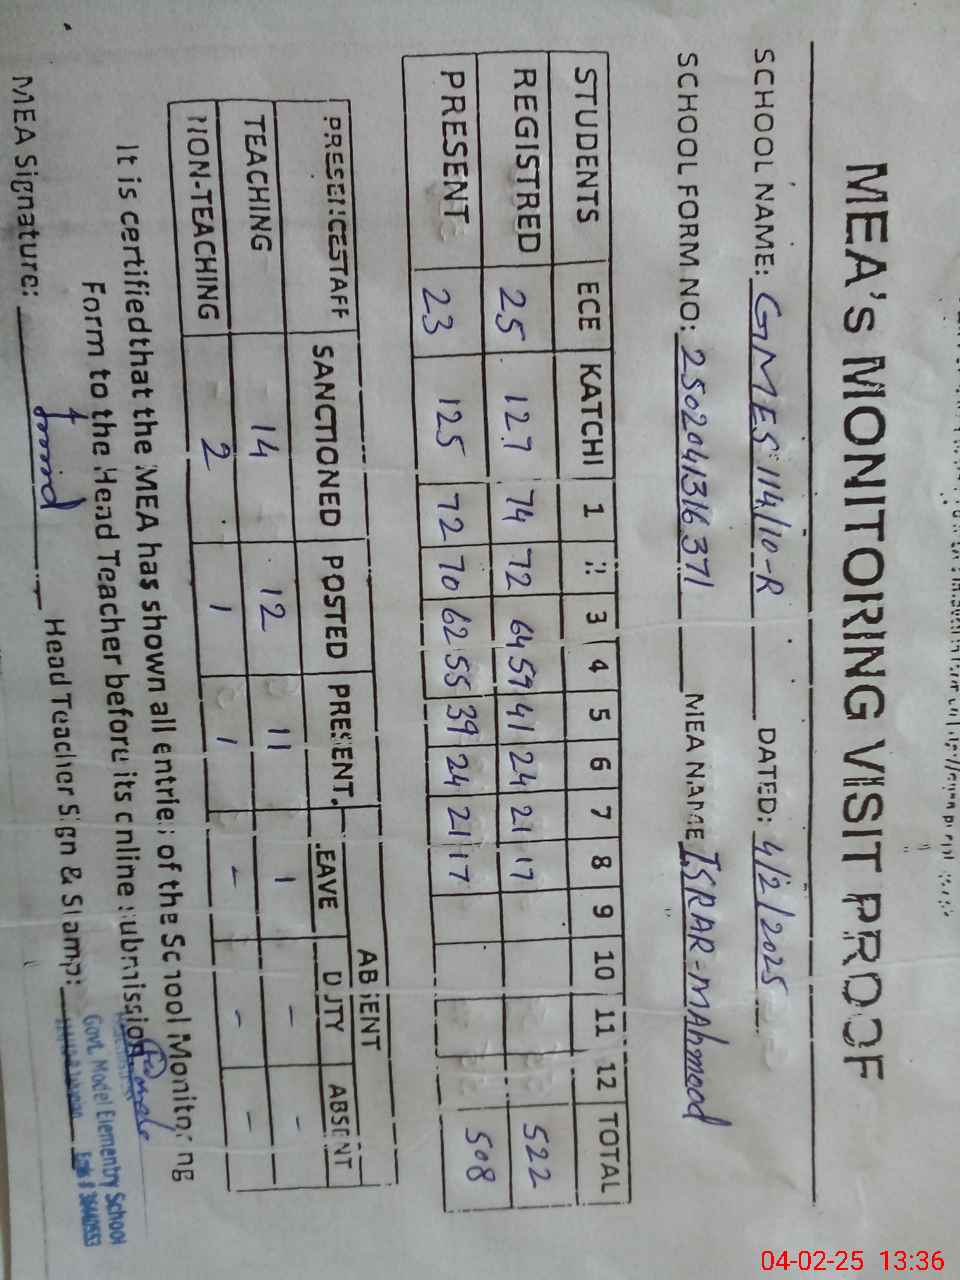 MEA's MONITORING VISIT PROOF
SCHOOL NAME: GMES 114/10-R DATED: 4/2/2025
SCHOOL FORM NO: 2502041316371 MEA NAME ISRAR-MAhmood
STUDENTS ECE KATCHI 1 2 3 4 5 6 7 8 9 10 11 12 TOTAL
REGISTRED 25 127 74 72 64 59 41 24 21 17 522
PRESENT 23 125 72 70 62 55 39 24 21 17 508
ABSENT
PRESENCE STAFF SANCTIONED POSTED PRESENT LEAVE DUTY ABSENT
TEACHING 14 12 11 1 - -
NON-TEACHING 2 1 1 - - -
It is certified that the MEA has shown all entries of the School Monitoring
Form to the Head Teacher before its online submission
MEA Signature: Head Teacher Sign & Stamp:
Govt. Model Elementry School
04-02-25 13:36